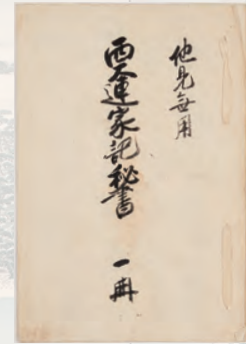 他見無用
西連家記秘書 一冊